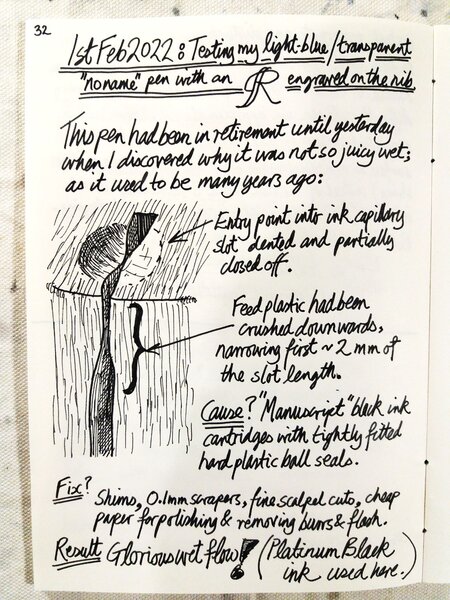 32
1st Feb 2022: Testing my light-blue/transparent
"noname" pen with an R engraved on the nib.
This pen had been in retirement until yesterday
when I discovered why it was not so juicy wet;
as it used to be many years ago:
Entry point into ink capillary
slot dented and partially
closed off.
Feed plastic had been
crushed downwards,
narrowing first ~2mm of
the slot length.
Cause? "Manuscript" black ink
cartridges with tightly fitted
hard plastic ball seals.
Fix? Shims, 0.1mm scrapers, fine scalpel cuts, cheap
paper for polishing & removing burrs & flash.
Result Glorious wet flow! (Platinum Black
ink used here.)